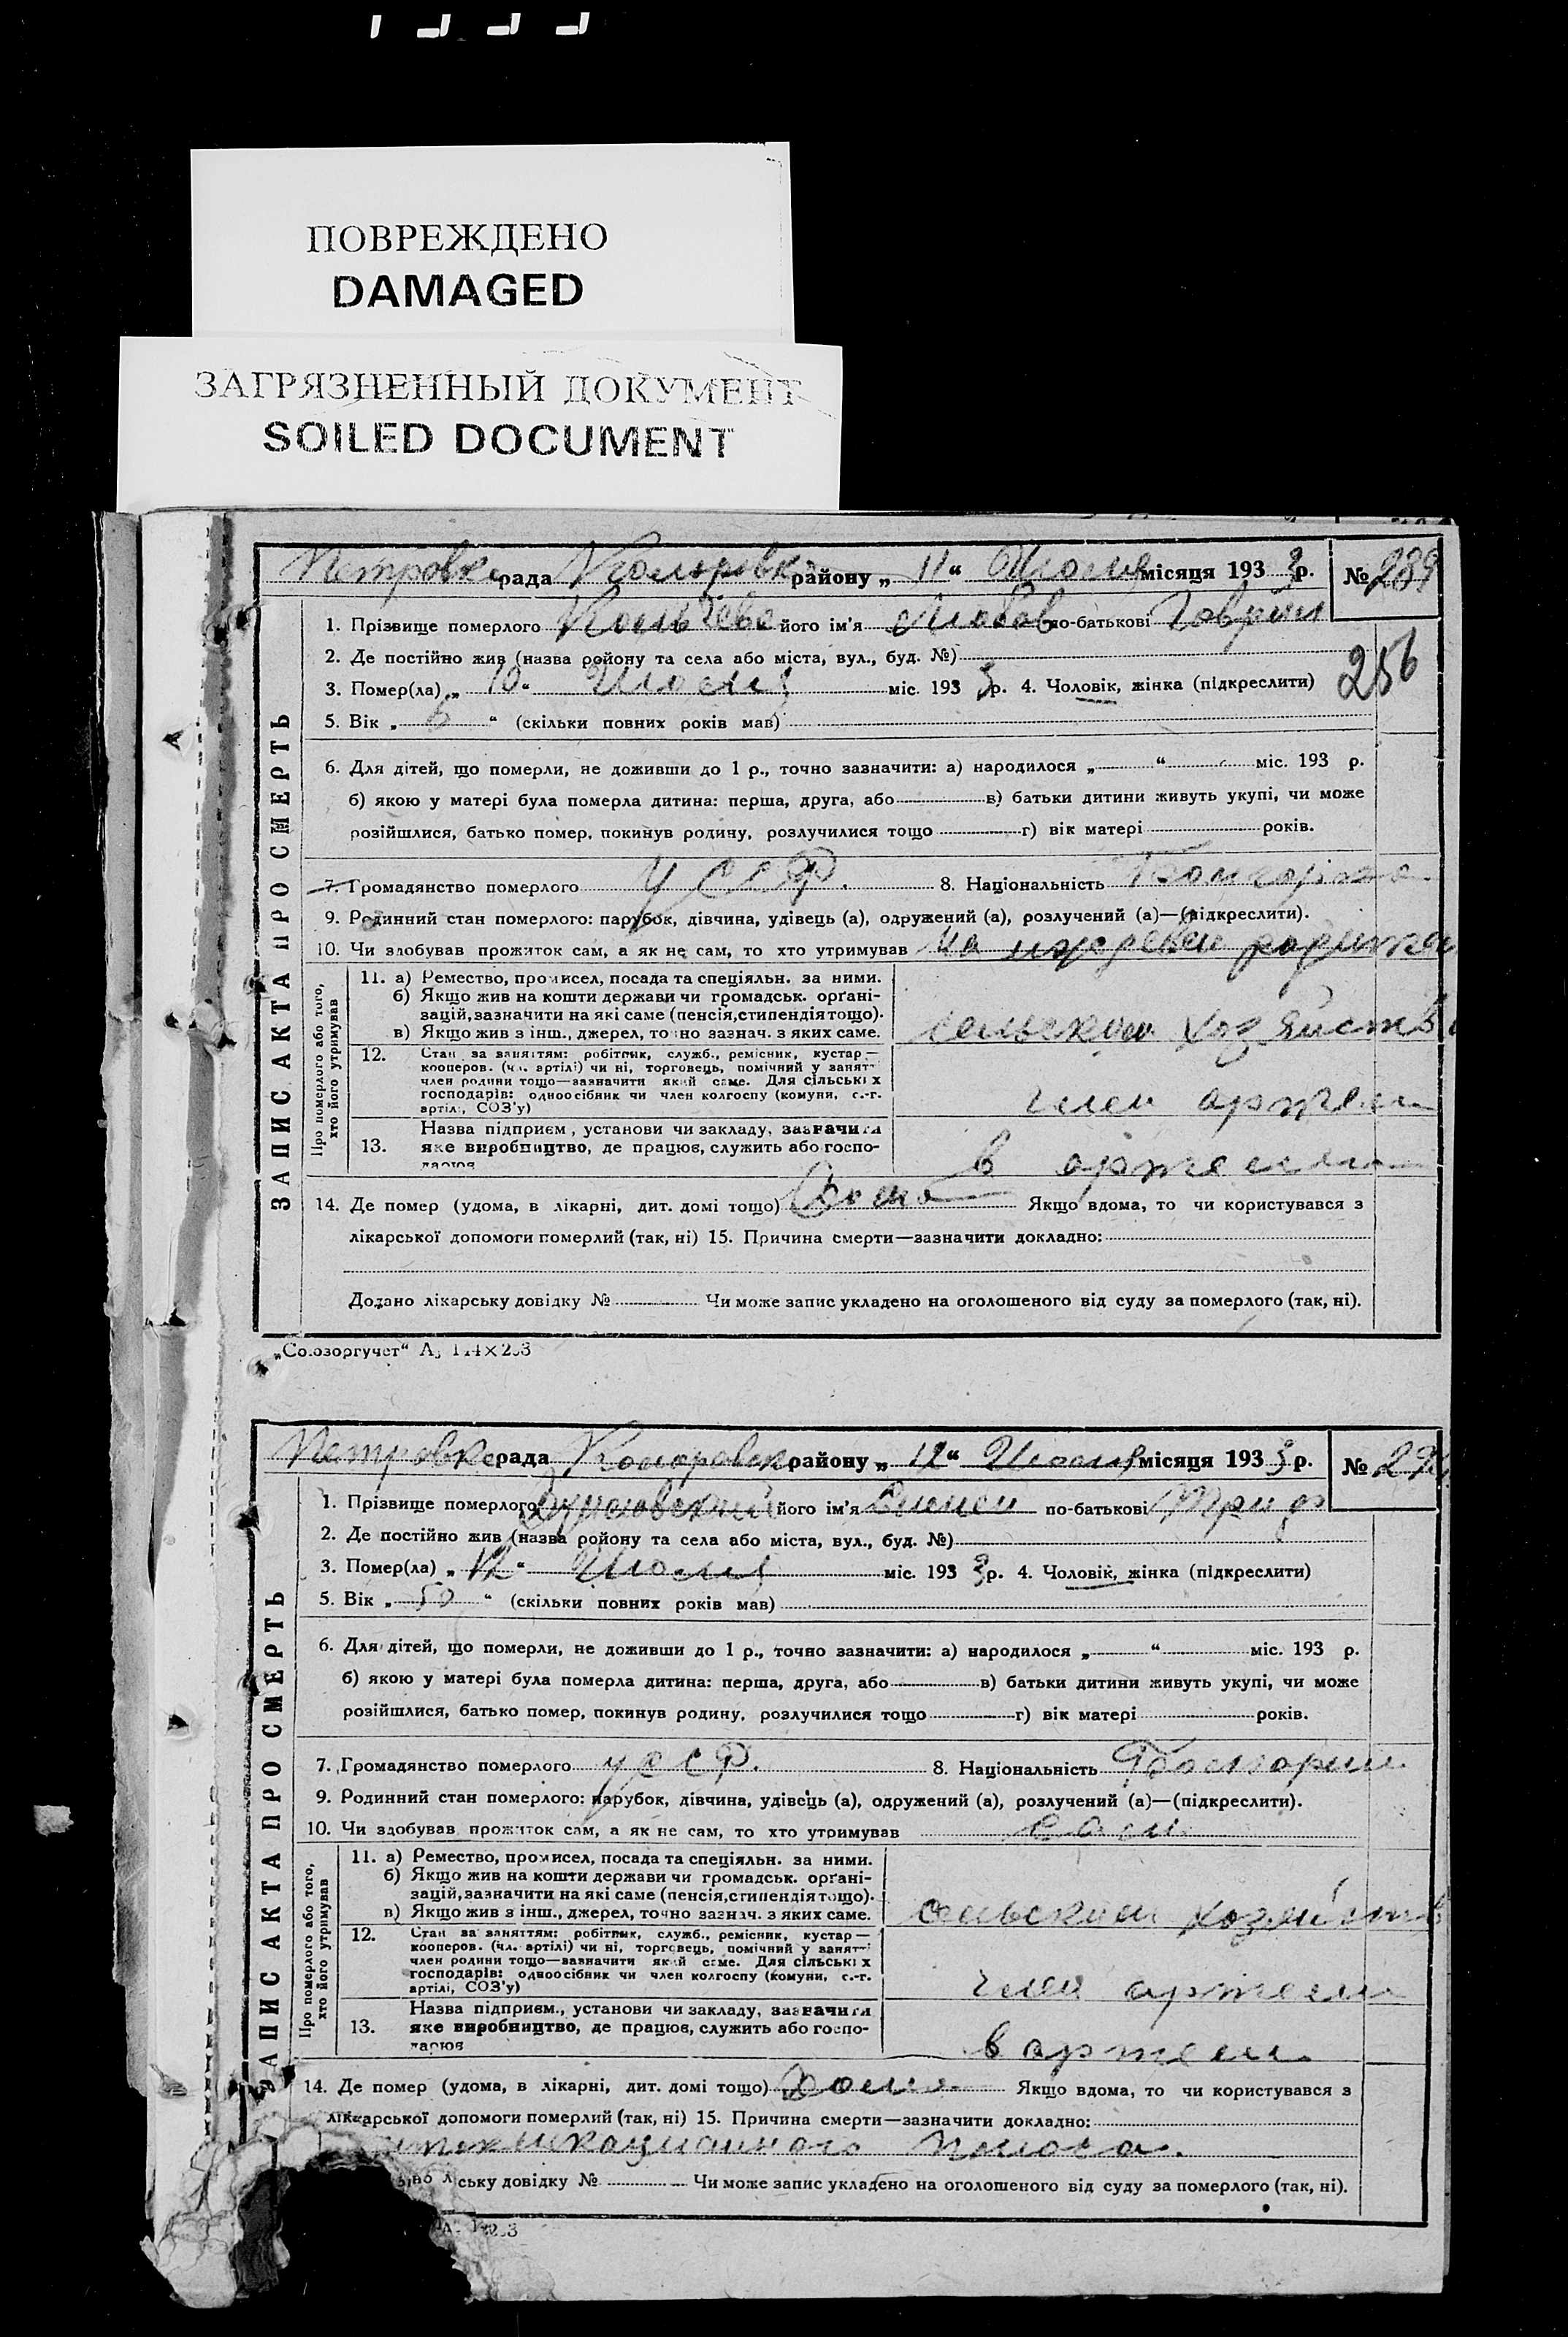 ПОВРЕЖДЕНО
DAMAGED
ЗАГРЯЗНЕННЫЙ ДОКУМЕНТ
SOILED DOCUMENT
рада району „ 11 “ місяця 193 3 р. № 289
256
ЗАПИС АКТА ПРО СМЕРТЬ
1. Прізвище померлого його ім'я по-батькові
2. Де постійно жив (назва ройону та села або міста, вул., буд. №)
3. Помер(ла) „ 10 “ Июля міс. 193 3 р. 4. Чоловік, жінка (підкреслити)
5. Вік „ 6 “ (скільки повних років мав)
6. Для дітей, що померли, не доживши до 1 р., точно зазначити: а) народилося „ “ міс. 193 р.
б) якою у матері була померла дитина: перша, друга, або в) батьки дитини живуть укупі, чи може
розійшлися, батько помер, покинув родину, розлучилися тощо г) вік матері років.
7. Громадянство померлого УССР. 8. Національність
9. Родинний стан померлого: парубок, дівчина, удівець (а), одружений (а), розлучений (а)—(підкреслити).
10. Чи здобував прожиток сам, а як не сам, то хто утримував на
Про померлого або того, хто його утримував
11. а) Ремество, промисел, посада та спеціяльн. за ними.
б) Якщо жив на кошти держави чи громадськ. орґані-
зацій, зазначити на які саме (пенсія, стипендія тощо).
в) Якщо жив з інш., джерел, точно зазнач. з яких саме.
12. Стан за заняттям: робітник, служб., ремісник, кустар—
кооперов. (чл. артілі) чи ні, торговець, помічний у занятт
член родини тощо—зазначити який саме. Для сільських
господарів: одноосібник чи член колгоспу (комуни, с.-г.
артілі, СОЗ'у) член артели
Назва підприєм., установи чи закладу, зазначити
13. яке виробництво, де працює, служить або госпо-
дарює в артели
14. Де помер (удома, в лікарні, дит. домі тощо) Дома Якщо вдома, то чи користувався з
лікарської допомоги померлий (так, ні) 15. Причина смерти—зазначити докладно:
Додано лікарську довідку № Чи може запис укладено на оголошеного від суду за померлого (так, ні).
„Союзоргучет“
рада району „ 12 “ Июля місяця 193 3 р. №
ЗАПИС АКТА ПРО СМЕРТЬ
1. Прізвище померлого його ім'я по-батькові
2. Де постійно жив (назва ройону та села або міста, вул., буд. №)
3. Помер(ла) „ 12 “ Июля міс. 193 3 р. 4. Чоловік, жінка (підкреслити)
5. Вік „ 50 “ (скільки повних років мав)
6. Для дітей, що померли, не доживши до 1 р., точно зазначити: а) народилося „ “ міс. 193 р.
б) якою у матері була померла дитина: перша, друга, або в) батьки дитини живуть укупі, чи може
розійшлися, батько помер, покинув родину, розлучилися тощо г) вік матері років.
7. Громадянство померлого УССР. 8. Національність
9. Родинний стан померлого: парубок, дівчина, удівець (а), одружений (а), розлучений (а)—(підкреслити).
10. Чи здобував прожиток сам, а як не сам, то хто утримував сам
Про померлого або того, хто його утримував
11. а) Ремество, промисел, посада та спеціяльн. за ними.
б) Якщо жив на кошти держави чи громадськ. орґані-
зацій, зазначити на які саме (пенсія, стипендія тощо).
в) Якщо жив з інш., джерел, точно зазнач. з яких саме.
12. Стан за заняттям: робітник, служб., ремісник, кустар—
кооперов. (чл. артілі) чи ні, торговець, помічний у занятт
член родини тощо—зазначити який саме. Для сільських
господарів: одноосібник чи член колгоспу (комуни, с.-г.
артілі, СОЗ'у) член артели
Назва підприєм., установи чи закладу, зазначити
13. яке виробництво, де працює, служить або госпо-
дарює в артели
14. Де помер (удома, в лікарні, дит. домі тощо) Дома Якщо вдома, то чи користувався з
лікарської допомоги померлий (так, ні) 15. Причина смерти—зазначити докладно:
ську довідку № Чи може запис укладено на оголошеного від суду за померлого (так, ні).